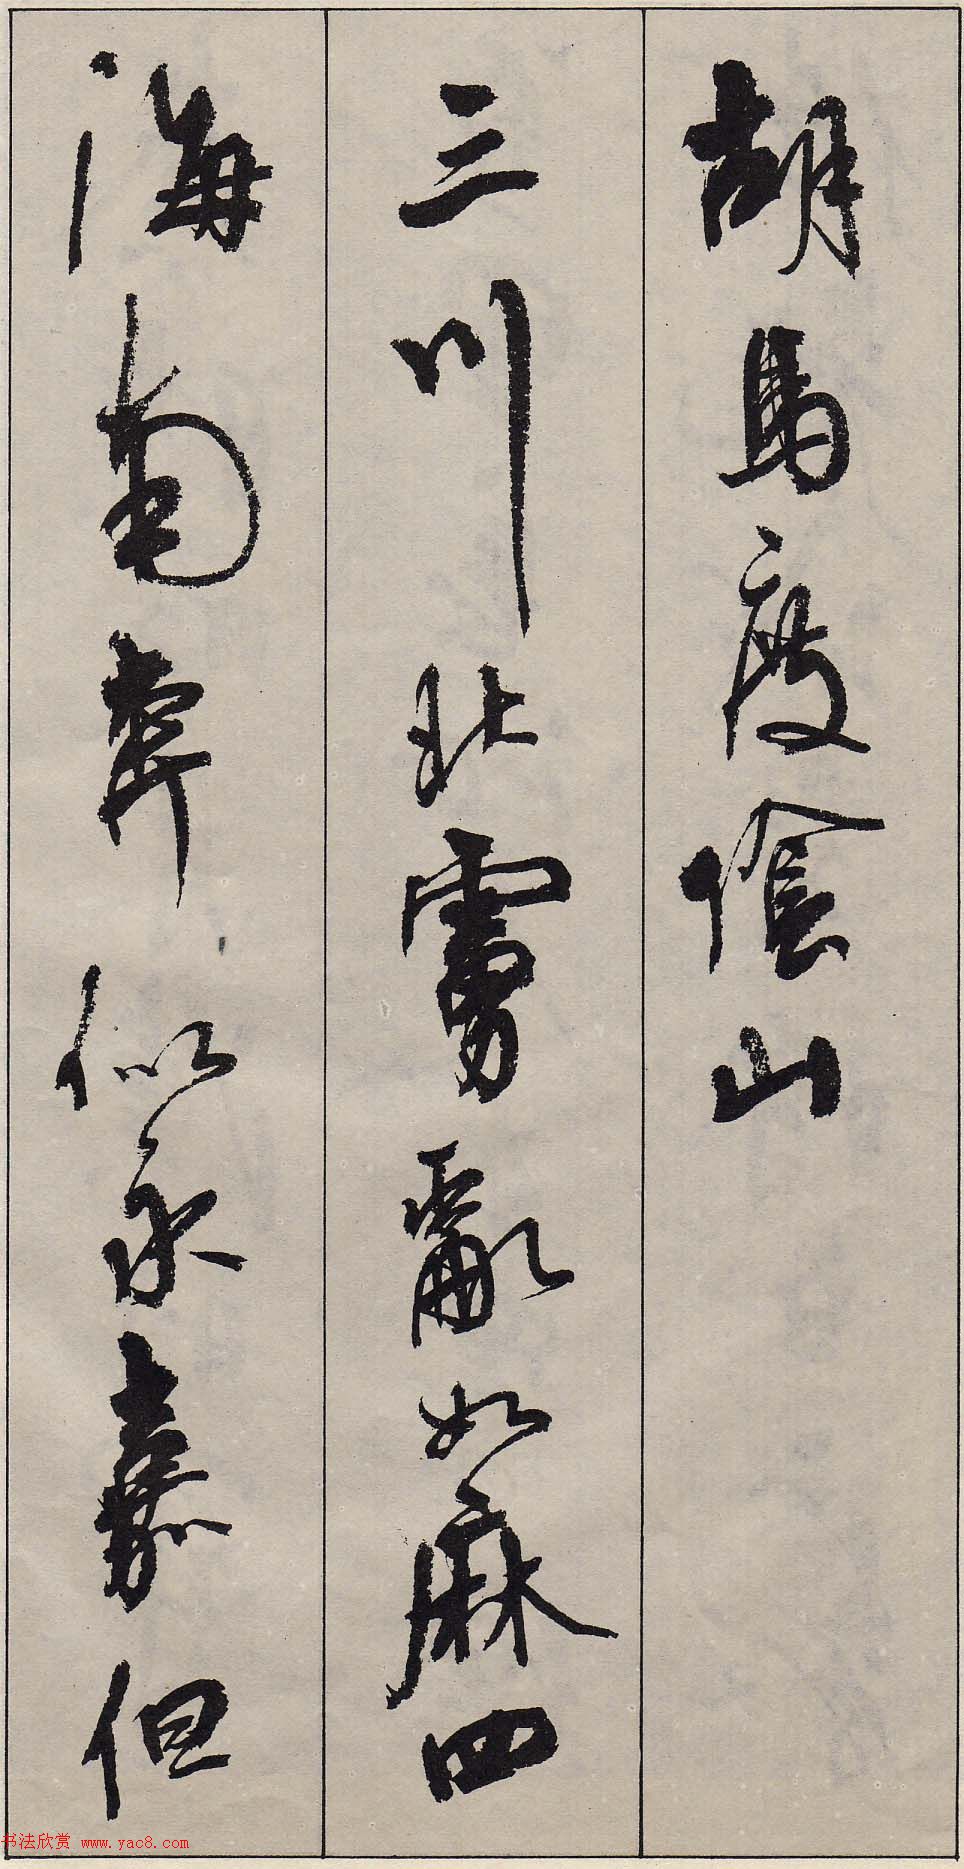 胡馬度陰山
三川北虜亂如麻四
海南奔似永嘉但
书法欣赏 www.yac8.com